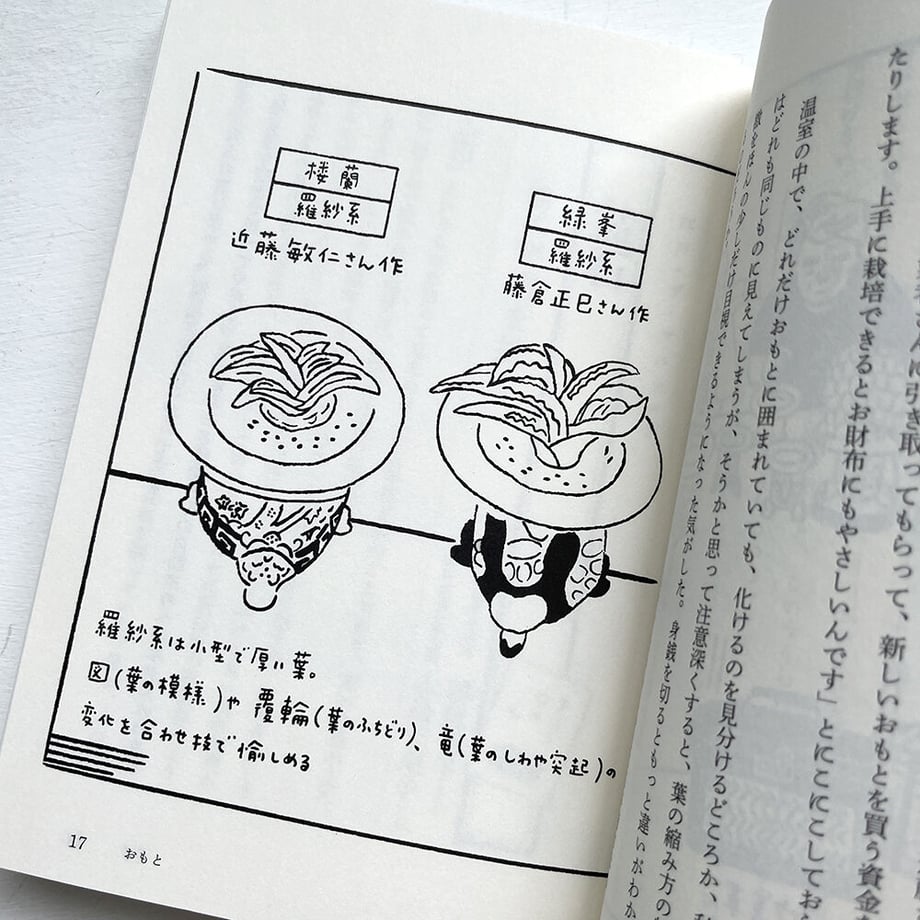 たりします。上手に栽培できるとお財布にもやさしいんです」とにこにこしてお
んに引き取ってもらって、新しいおもとを買う資金
温室の中で、どれだけおもとに囲まれていても、化けるのを見分けるどころか、
はどれも同じものに見えてしまうが、そうかと思って注意深くすると、葉の縮み方の
をほんの少しだけ目視できるようになった気がした。身銭を切るともっと違いがわか
楼蘭
羅紗系
近藤敏仁さん作
緑峯
羅紗系
藤倉正巳さん作
羅紗系は小型で厚い葉。
図(葉の模様)や覆輪(葉のふちどり)、竜(葉のしわや突起)の
変化を合わせ技で愉しめる
17 おもと